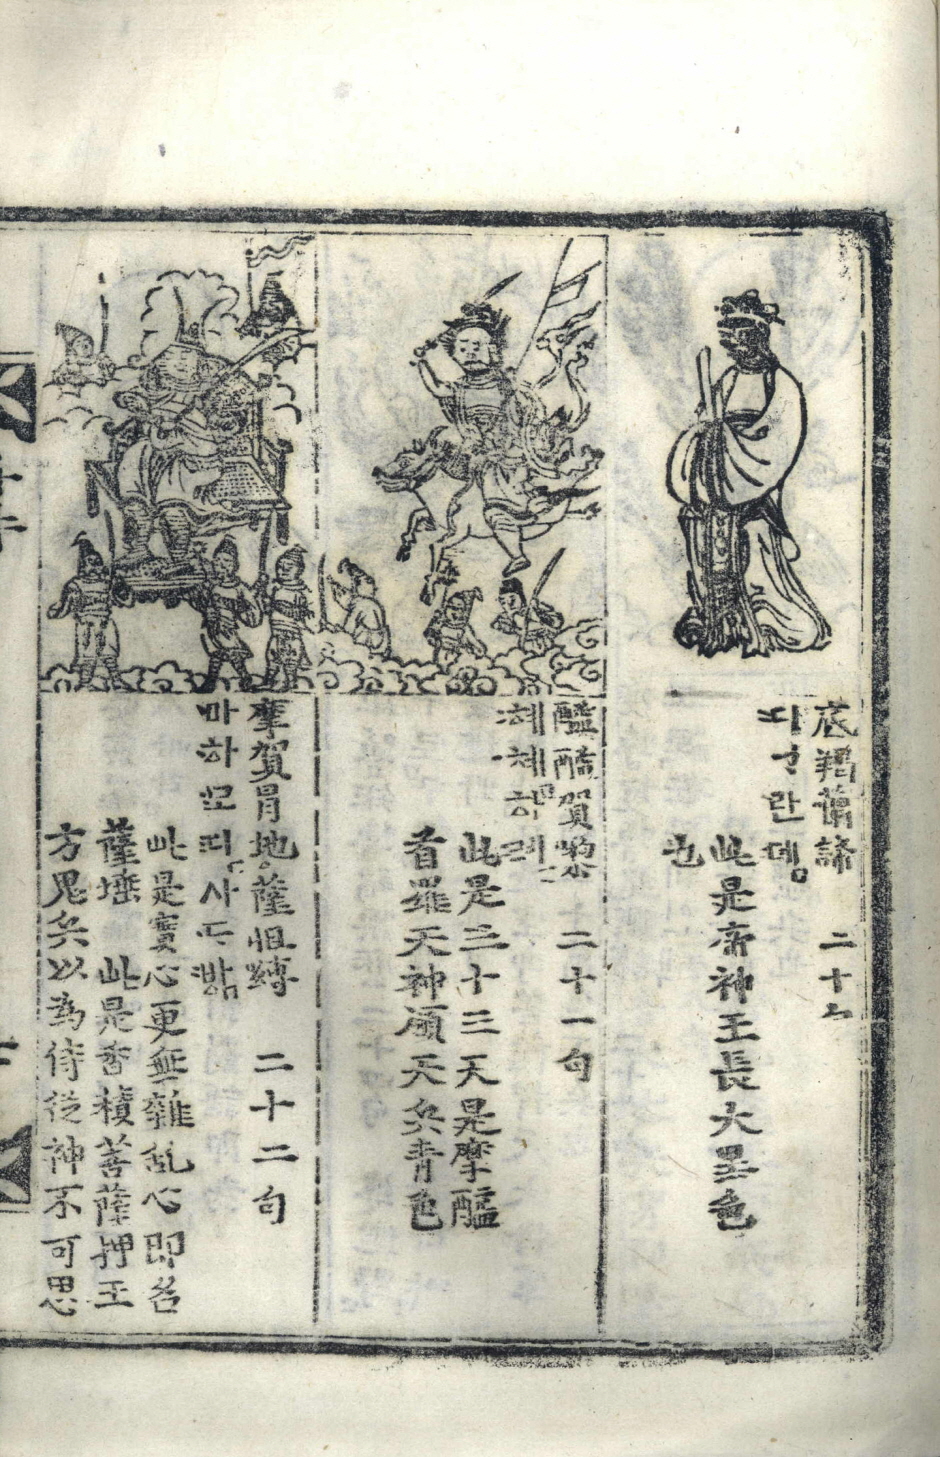 底羯蘭諦 二十
디ᄀᆞ란뎨ᇰ
此是斋神王長大黑色
也
醯醯賀㘑 二十一句
혜혜하례
此是三十三天是摩醯
首羅天神領天兵青色
摩賀冐地薩怛嚩 二十二句
마하모디사ᄃᆞ밤
此是實心更無雜乱心即名
薩埵 此是香積菩薩押王
方鬼兵以為侍従神不可思